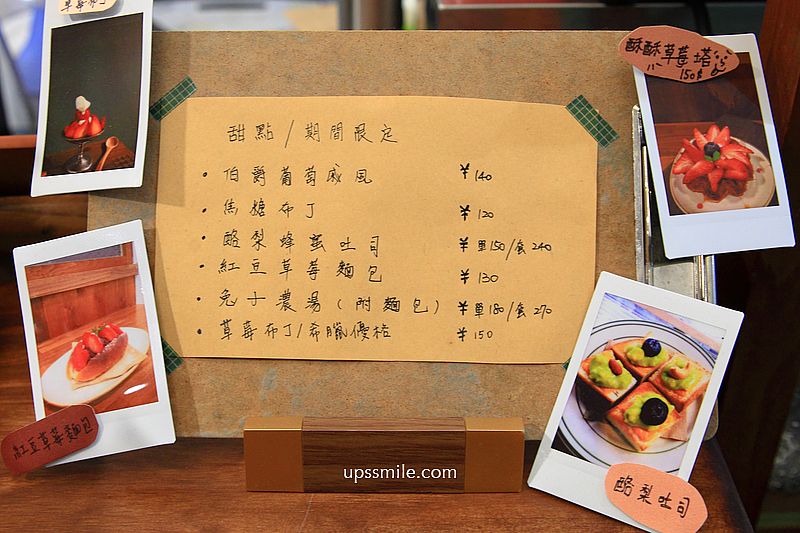 草莓布丁
酥酥草莓塔
150$
甜點/期間限定
• 伯爵葡萄戚風 ¥140
• 焦糖布丁 ¥120
• 酪梨蜂蜜吐司 ¥單150/套240
• 紅豆草莓麵包 ¥130
• 兔子濃湯(附麵包) ¥單180/套270
• 草莓布丁/希臘優格 ¥150
紅豆草莓麵包
酪梨吐司
upssmile.com